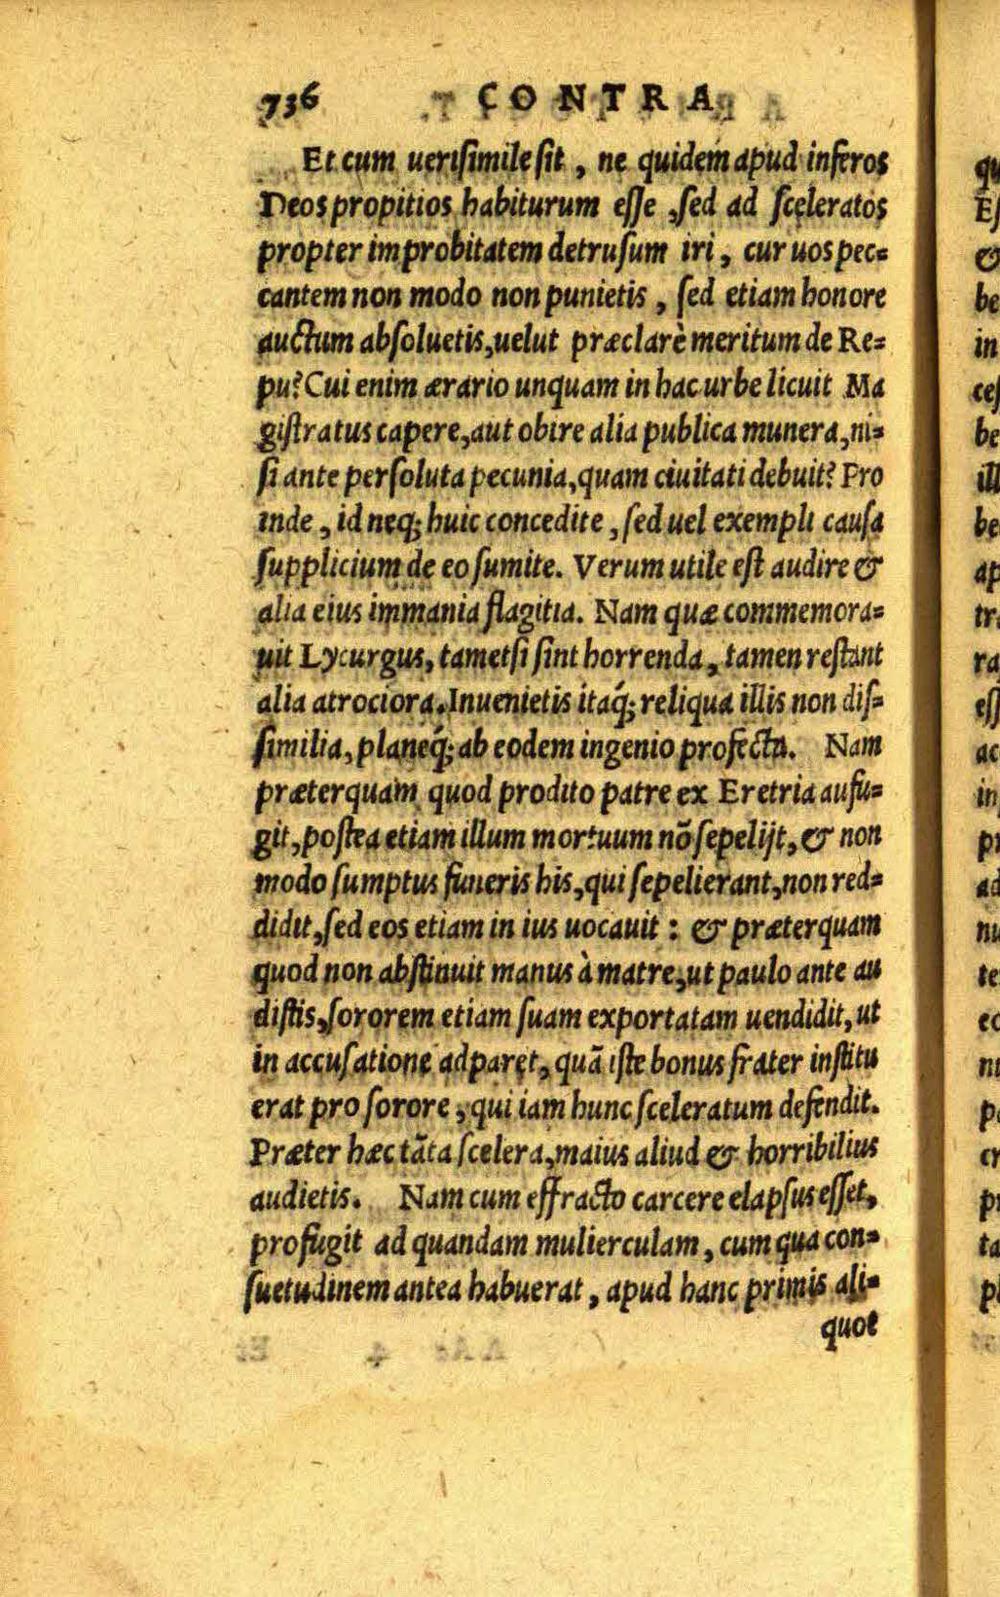 736 CONTRA
Et cum uerisimile sit, ne quidem apud inferos
Deos propitios habiturum esse, sed ad sceleratos
propter improbitatem detrusum iri, cur uos pec=
cantem non modo non punietis, sed etiam honore
auctum absoluetis, uelut præclarè meritum de Re=
pu? Cui enim ærario unquam in hac urbe licuit Ma
gistratus capere, aut obire alia publica munera, ni=
si ante persoluta pecunia, quam ciuitati debuit? Pro
inde, id neq; huic concedite, sed uel exempli causa
supplicium de eo sumite. Verum utile est audire &
alia eius immania flagitia. Nam quæ commemora=
uit Lycurgus, tametsi sint horrenda, tamen restant
alia atrociora. Inuenietis itaq́; reliqua illis non dis=
similia, planeq́; ab eodem ingenio profecta. Nam
præterquam quod prodito patre ex Eretria aufu=
git, postea etiam illum mortuum nō sepelijt, & non
modo sumptus funeris his, qui sepelierant, non red=
didit, sed eos etiam in ius uocauit: & præterquam
quod non abstinuit manus à matre, ut paulo ante au
distis, sororem etiam suam exportatam uendidit, ut
in accusatione adparet, quā iste bonus frater institu
erat pro sorore, qui iam hunc sceleratum defendit.
Præter hæc tāta scelera, maius aliud & horribilius
audietis. Nam cum effracto carcere elapsus esset,
profugit ad quandam mulierculam, cum qua con=
suetudinem antea habuerat, apud hanc primis ali=
quot